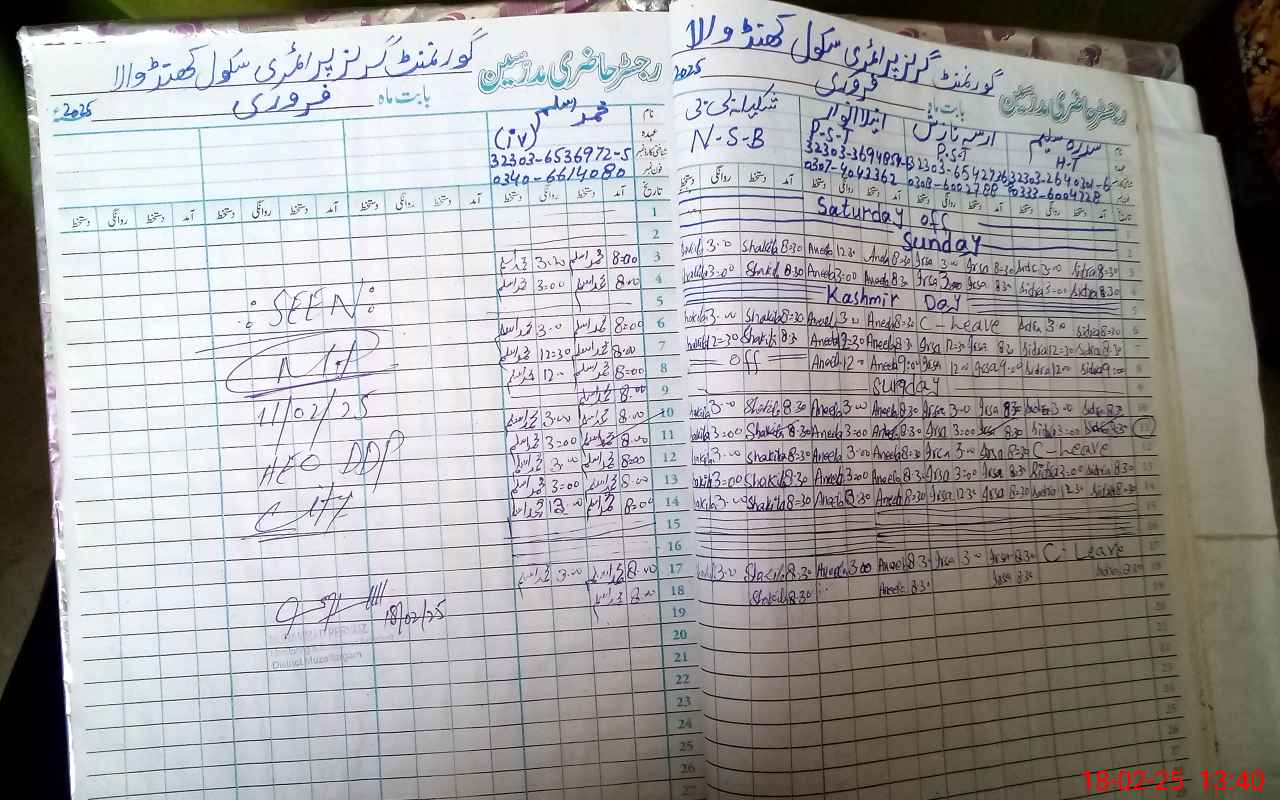 رجسٹر حاضری مدرسین
گورنمنٹ گرلز پرائمری سکول کھنڈ والا
بابت ماہ فروری 2025ء
نام محمد اسلم
عہدہ (iv)
شناختی کارڈ نمبر 32303-6536972-5
فون نمبر 0340-6614080
تاریخ آمد دستخط روانگی دستخط آمد دستخط روانگی دستخط آمد دستخط روانگی دستخط آمد دستخط روانگی دستخط
1
2
3 8=00 محمد اسلم 3.00 محمد اسلم
4 8.00 محمد اسلم 3=00 محمد اسلم
5
6 8=00 محمد اسلم 3.00 محمد اسلم
7 8=00 محمد اسلم 12=30 محمد اسلم
8 8=00 محمد اسلم 12.00 محمد اسلم
9
10 8.00 محمد اسلم 3.00 محمد اسلم
11 8.00 محمد اسلم 3=00 محمد اسلم
12 8=00 محمد اسلم 3.00 محمد اسلم
13 8.00 محمد اسلم 3=00 محمد اسلم
14 8=00 محمد اسلم 12.00 محمد اسلم
15
16
17 8.00 محمد اسلم 3.00 محمد اسلم
18 8.00 محمد اسلم
19
20
21
22
23
24
25
26
: SEEN :
11/02/25
AEO DDP
City
18/02/25
District Muzaffargarh
رجسٹر حاضری مدرسین
گورنمنٹ گرلز پرائمری سکول کھنڈ والا
بابت ماہ فروری 2025
نام سدرہ سلیم انیلا انوار شکیلہ بی بی
H-T P.S.T P-S-T N-S-B
32303-3694854
0333-6004728 0308-6002788 0307-4042362
Saturday off
Sunday
Sidra 8=30 Sidra 3.00 Irsa 8=30 Irsa 3.00 Aneela 8=30 Aneela 12.30 Shakila 8=30 3.00
Sidra 8.30 Sidra 3=00 Irsa 8.30 Irsa Aneela 8=30 Aneela 3=00 Shakila 8.30 3=00
Kashmir Day
Sidra 8=30 Sidra 3.00 C-Leave Aneela 8=30 Aneela 3.00 Shakila 8=30 3.00
Sidra 8.30 Sidra 12=30 Irsa 8.30 Irsa 12=30 Aneela 8.30 Aneela Shakila 8.30 12=30
Sidra 9:00 Sidra 12.00 Irsa 9.00 Irsa 12.00 Aneela 9:00 Aneela 12.00 off
Sunday
Sidra 8.30 Sidra 3.00 Irsa 8.30 Irsa 3.00 Aneela 8=30 Aneela 3.00 Shakila 8.30 3.00
Sidra 8.30 Sidra 3=00 Irsa 8.30 Irsa 3=00 Aneela 8.30 Aneela 3=00 Shakila 8.30 3=00
C-Leave Irsa 8=30 Irsa 3.00 Aneela 8=30 Aneela 3.00 Shakila 8=30 3.00
Sidra 8.30 Sidra 3=00 Irsa 8.30 Irsa 3=00 Aneela 8.30 Aneela 3=00 Shakila 8.30 3=00
Sidra 8=30 Sidra 12.30 Irsa 8=30 Irsa 12.30 Aneela 8=30 Aneela Shakila 8=30 3.00
C-Leave Irsa 8.30 Irsa 3.00 Aneela 8.30 Aneela 3.00 Shakila 8.30 3.00
Sidra 8.30 Irsa 8.30 Aneela 8.30 Shakila 8.30
18-02-25 13:40